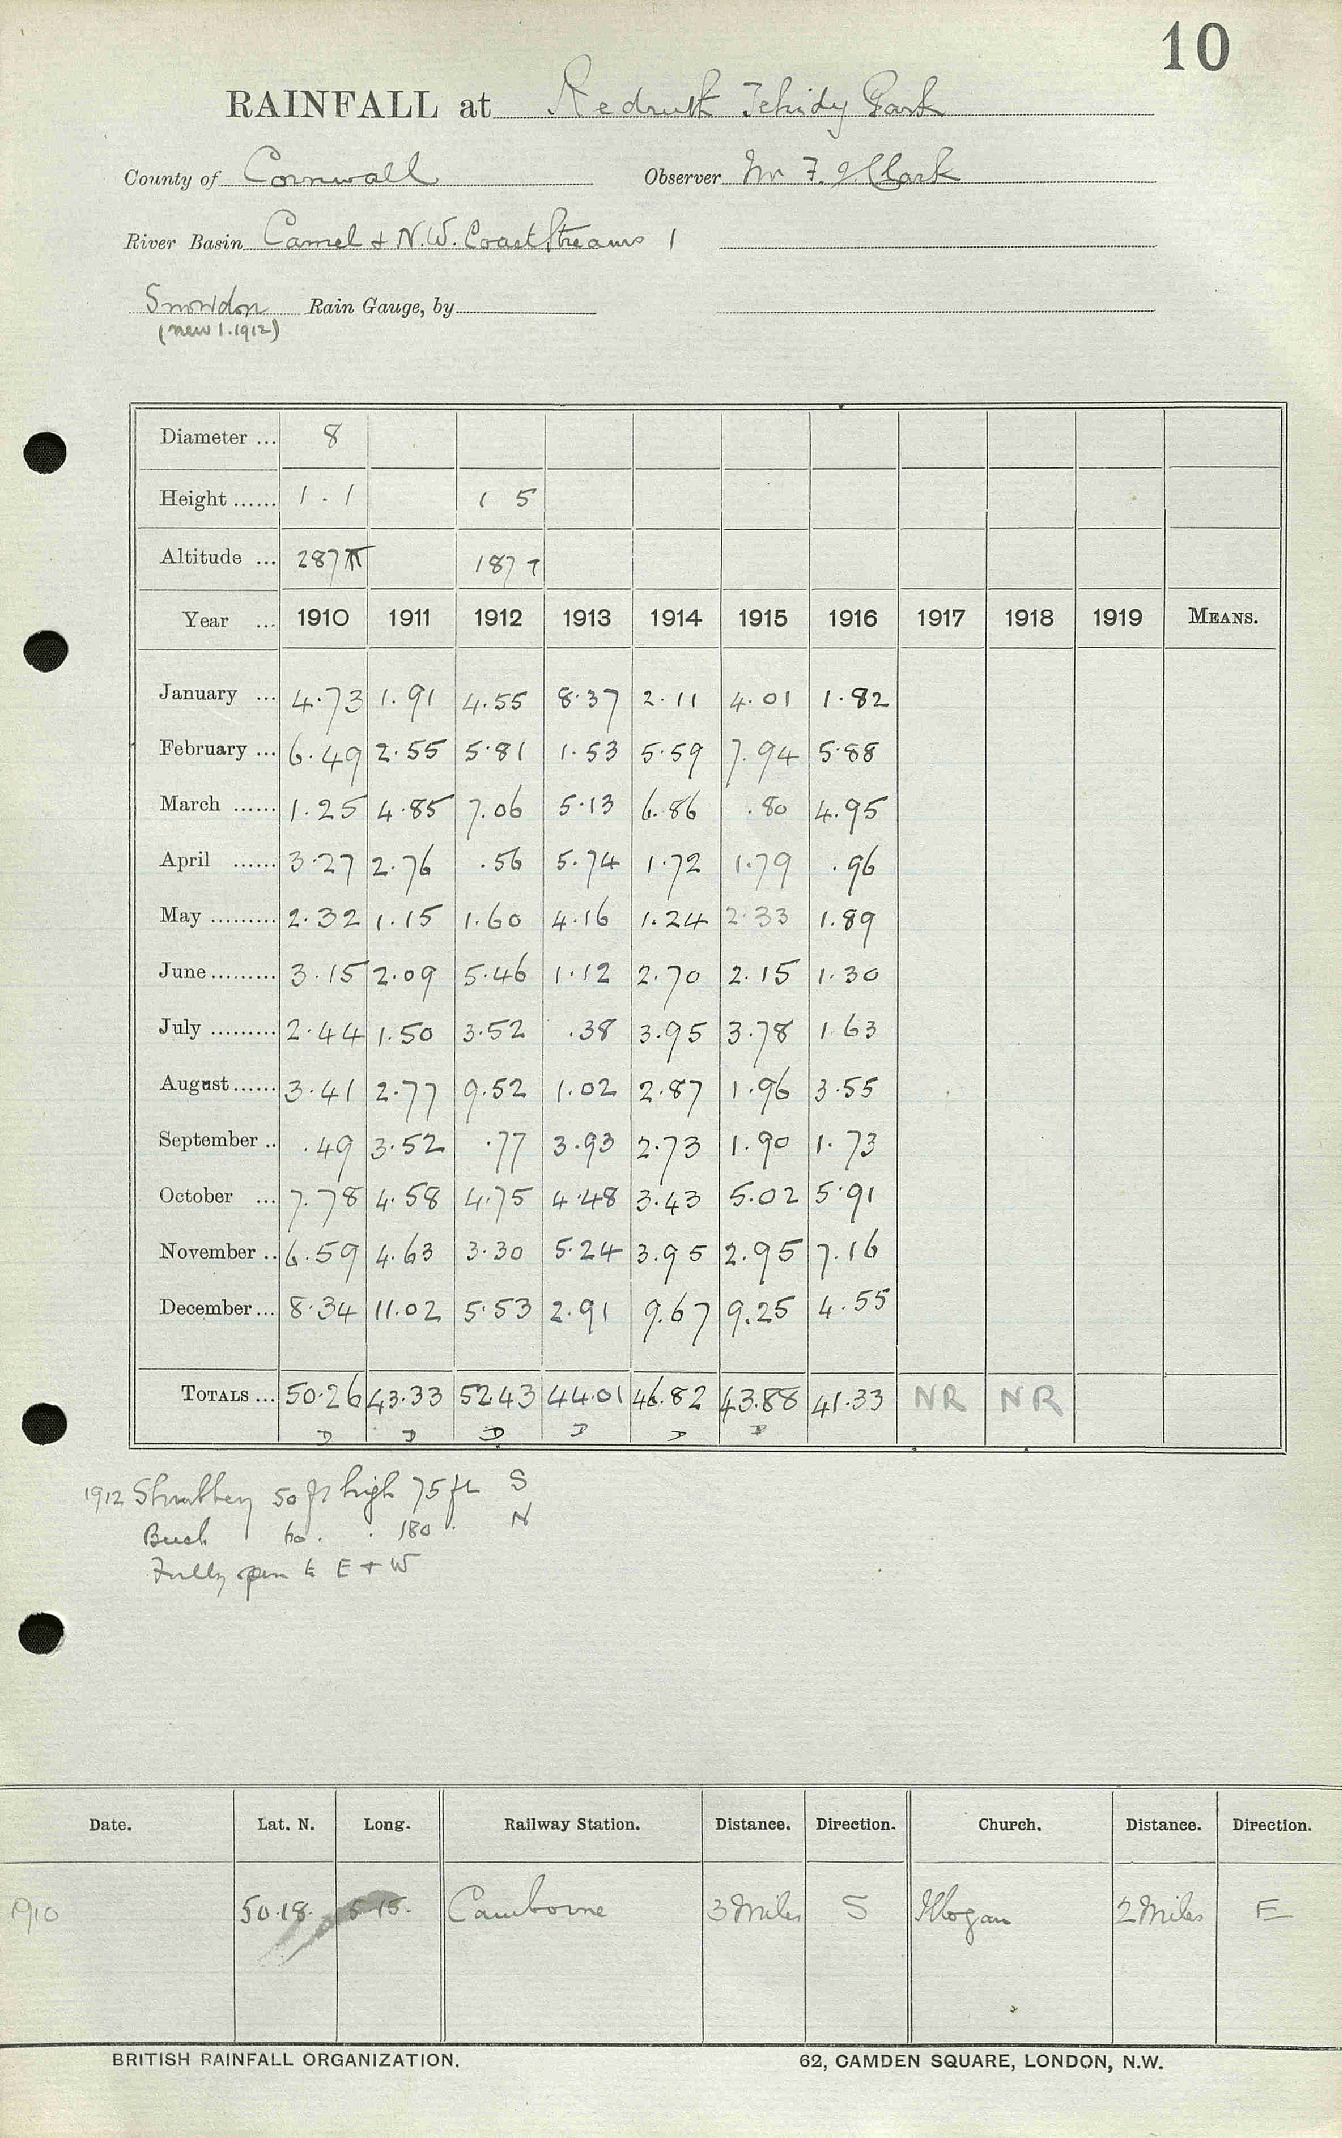 10
RAINFALL at Redruth Tehidy Park
County of Cornwall Observer Mr F. J. Clark
River Basin Camel & N.W. Coast Streams 1
Snowdon Rain Gauge, by
(new 1.1912)
Diameter ... 8
Height ...... 1 . 1 1 5
Altitude ... 287 187
Year ... 1910 1911 1912 1913 1914 1915 1916 1917 1918 1919 MEANS.
January ... 4.73 1.91 4.55 8.37 2.11 4.01 1.82
February ... 6.49 2.55 5.81 1.53 5.59 7.94 5.88
March ...... 1.25 4.85 7.06 5.13 6.86 .80 4.95
April ...... 3.27 2.76 .56 5.74 1.72 1.79 .96
May ......... 2.32 1.15 1.60 4.16 1.24 2.33 1.89
June ......... 3.15 2.09 5.46 1.12 2.70 2.15 1.30
July ......... 2.44 1.50 3.52 .38 3.95 3.78 1.63
August ...... 3.41 2.77 9.52 1.02 2.87 1.96 3.55
September .. .49 3.52 .77 3.93 2.73 1.90 1.73
October ... 7.78 4.58 4.75 4.48 3.43 5.02 5.91
November .. 6.59 4.63 3.30 5.24 3.95 2.95 7.16
December ... 8.34 11.02 5.53 2.91 9.67 9.25 4.55
TOTALS ... 50.26 43.33 52.43 44.01 46.82 43.88 41.33 NR NR
D D D D D D
1912 Shrubbery 50 ft high 75 ft S
60 . . 180 . N
Fully open to E & W
Date. Lat. N. Long. Railway Station. Distance. Direction. Church. Distance. Direction.
1910 50.18. 5.15. Camborne 3 Miles S Illogan 2 Miles E
BRITISH RAINFALL ORGANIZATION. 62, CAMDEN SQUARE, LONDON, N.W.